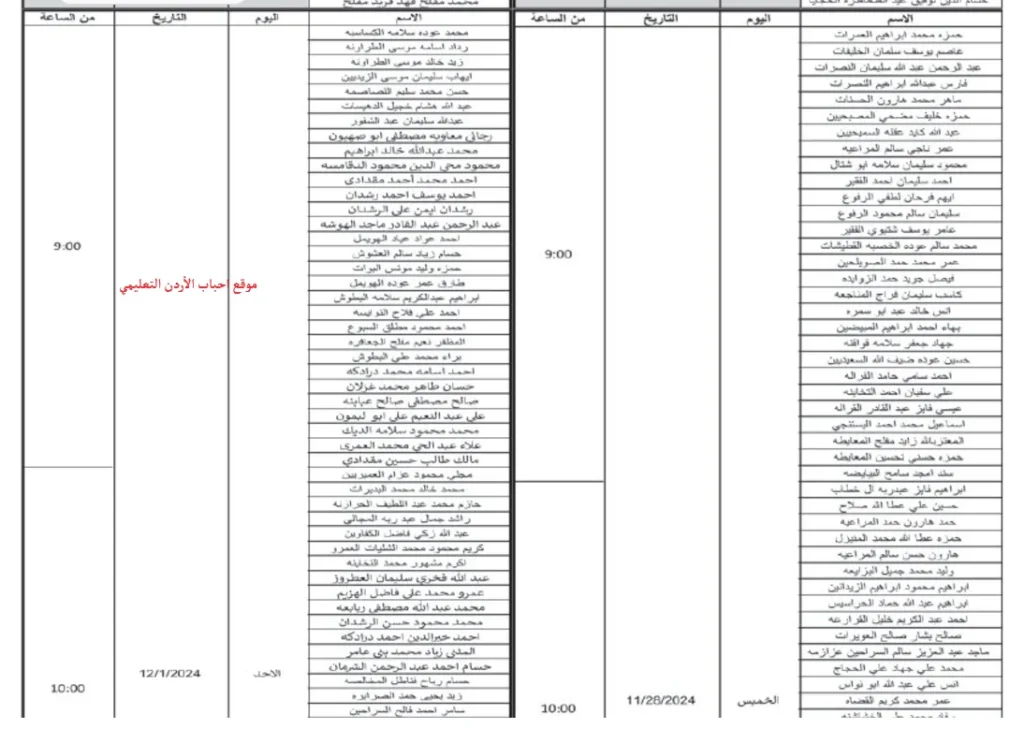 الاسم اليوم التاريخ من الساعة
حمزه محمد ابراهيم العمرات
عاصم يوسف سلمان الخليفات
عبد الرحمن عبد الله سليمان النصرات
فارس عبدالله ابراهيم النصرات
ماهر محمد هارون الحسنات
حمزه خليف مضحي المصبحيين
عبد الله كايد عقله السميحيين
عمر ناجي سالم المراعيه
محمود سليمان سلامه ابو شتال
احمد سليمان احمد الفقير
ايهم فرحان لطفي الرفوع
سليمان سالم محمود الرفوع
عامر يوسف شتيوي الفقير
محمد سالم عوده الخصبه القطيشات
9:00
عمر محمد حمد الصويلحين
فيصل جريد حمد الزوايده
كاسب سليمان فراج المناجعه
انس خالد عبد ابو سمره
بهاء احمد ابراهيم المبيضين
جهاد جعفر سلامه قواقنه
حسين عوده ضيف الله السعيديين
احمد سامي حامد القراله
علي سفيان احمد التخاينه
عيسى فايز عبد القادر القراله
اسماعيل محمد احمد البستنجي
المعتزبالله زايد مفلح المعايطه
حمزه حسني تحسين المعايطه
سند امجد سامح البيايضه
ابراهيم فايز عبدربه ال خطاب
حسين علي عطا الله صلاح
حمد هارون حمد المراعيه
حمزه عطا الله محمد المنيزل
هارون حسن سالم المراعيه
وليد محمد جميل البزايعه
ابراهيم محمود ابراهيم الزيدانين
ابراهيم عبد الله حماد الحراسيس
احمد عبد الكريم خليل القرارعه
صالح بشار صالح العويرات
ماجد عبد العزيز سالم السراحين عزازمه
محمد علي جهاد علي الحجاج
انس علي عبد الله ابو نواس
عمر محمد كريم القضاه
الخميس 11/28/2024 10:00
محمد مفلح فهد فريد مفلح
الاسم اليوم التاريخ من الساعة
محمد عوده سلامه الكساسبه
رداد اسامه موسى الطراونه
زيد خالد موسى الطراونه
ايهاب سليمان موسى الزيديين
حسن محمد سليم القصاصمه
عبد الله هشام خجيل الدهيسات
عبدالله سليمان عبد الشقور
رجائي معاويه مصطفى ابو صهيون
محمد عبدالله خالد ابراهيم
محمود محي الدين محمود الدقامسه
احمد محمد أحمد مقدادي
احمد يوسف احمد رشدان
رشدان ايمن علي الرشدان
عبد الرحمن عبد القادر ماجد الهوشه
احمد جواد عياد الهويمل
9:00
حسام زياد سالم العشوش
حمزه وليد مونس البرات
طارق عمر عوده الهويمل
موقع أحباب الأردن التعليمي
ابراهيم عبدالكريم سلامه البطوش
احمد علي فلاح النوايسه
احمد محمود مطلق السبوع
المظفر نعيم مفلح الجعافره
براء محمد علي البطوش
احمد اسامه محمد درادكه
حسان طاهر محمد غزلان
صالح مصطفى صالح عبابنه
علي عبد النعيم علي ابو ليمون
محمد محمود سلامه الديك
علاء عبد الحي محمد العمري
مالك طالب حسين مقدادي
مجلي محمود عزام العميريين
محمد خالد محمد البديرات
حازم محمد عبد اللطيف الحرازنه
راشد جمال عبد ربه المجالي
عبد الله زكي فاضل الكفاوين
كريم محمود محمد الشليات العمرو
اكرم مشهور محمد التخاينه
عبد الله فخري سليمان العطروز
عمرو محمد علي فاضل الهزيم
محمد عبد الله مصطفى ربابعه
محمد محمود حسن الرشدان
احمد خيرالدين احمد درادكه
المثنى زياد محمد بني عامر
حسام احمد عبد الرحمن الشرمان
الاحد 12/1/2024
حسام رباح المخالصه
10:00
زيد يحيى حمد الصرايره
سامر احمد فالح السراحين